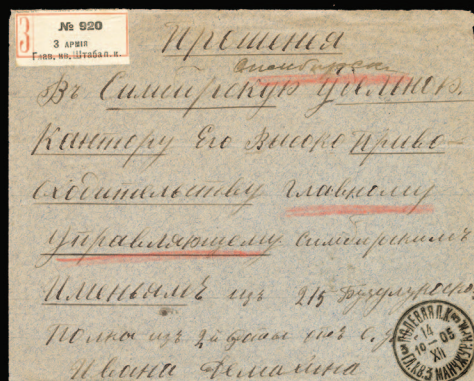 3
№ 920
3 АРМІЯ
Глав. кв. Штаба п. к.
Прошенія
Въ Симбирскую Удельнов.
Кантору Его Высоко Приво-
сходительству Главному
Управляющему Симбирскимъ
Именьямъ изъ 215 Бузулукскаго
Полка изъ
Ивана
ПОЛЕВАЯ П.К.
14
10 05
XII
МАНЧЖУР.